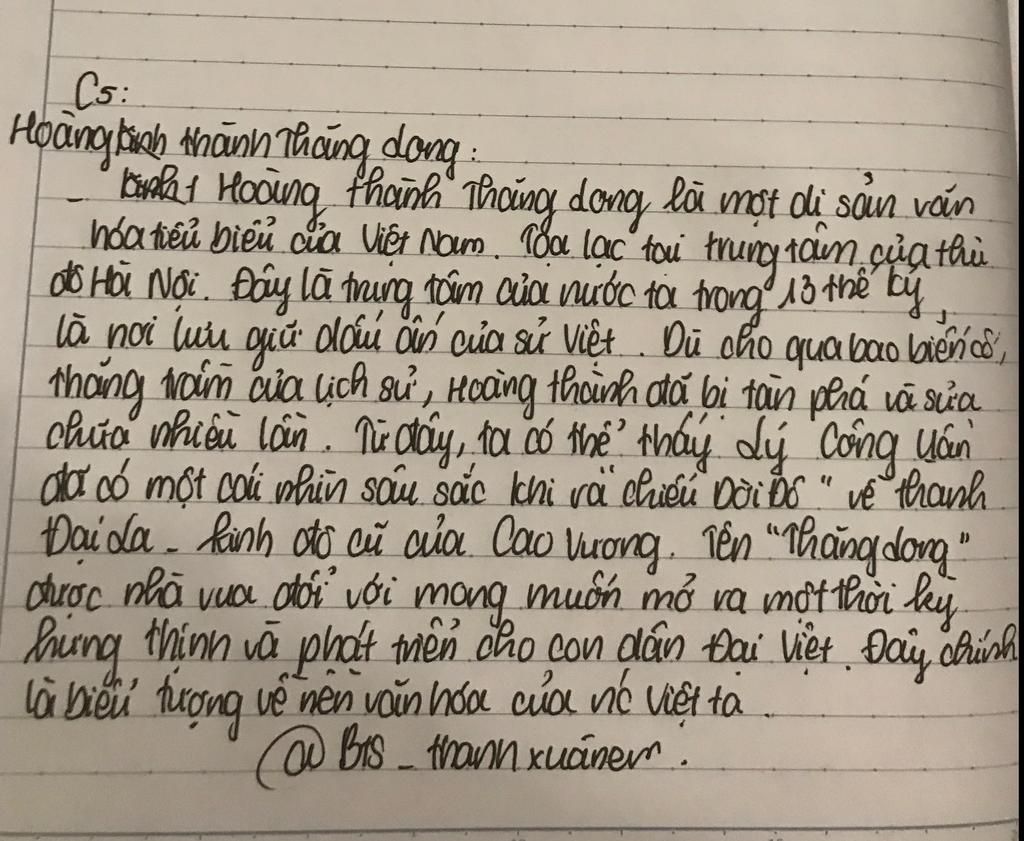 C5:
Hoàng thành Thăng Long:
- Hoàng thành Thăng Long là một di sản văn
hóa tiểu biểu của Việt Nam. Tọa lạc tại trung tâm của thủ
đô Hà Nội. Đây là trung tâm của nước ta trong 13 thế kỷ,
là nơi lưu giữ dấu ấn của sử Việt. Dù cho qua bao biến cố,
thăng trầm của lịch sử, Hoàng thành đã bị tàn phá và sửa
chữa nhiều lần. Từ đây, ta có thể thấy Lý Công Uẩn
đã có một cái nhìn sâu sắc khi ra "chiếu Dời Đô" về thành
Đại La - kinh đô cũ của Cao Vương. Tên "Thăng Long"
được nhà vua đổi với mong muốn mở ra một thời kỳ
hưng thịnh và phát triển cho con dân Đại Việt. Đây chính
là biểu tượng về nền văn hóa của nc Việt ta.
@BTS_thanhxuanem.